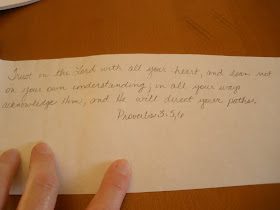 Trust in the Lord with all your heart, and lean not
on your own understanding; in all your ways
acknowledge Him, and He will direct your paths.
Proverbs 3:5,6